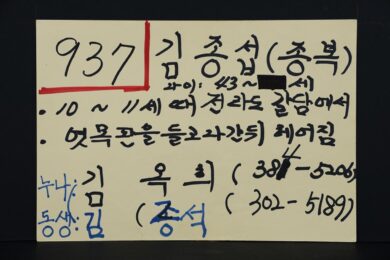 937 김종섭(종복)
나이: 43~ 세
· 10 ~ 11세 때 전라도 갈담에서
· 엿목판을 들고 나간 뒤 헤어짐
누나: 김 옥희 (384-5206)
동생: 김 (종석 (302-5189)